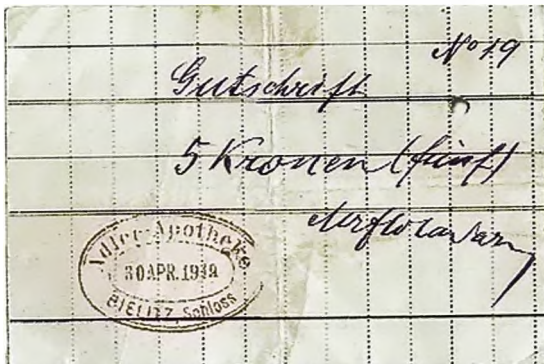 No 19
Gutschrift
5 Kronen (fünf)
Adler-Apotheke
30 APR. 1919
BIELITZ, Schloss